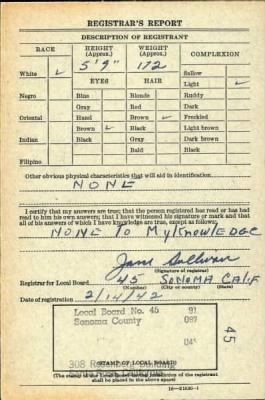 REGISTRAR'S REPORT
DESCRIPTION OF REGISTRANT
RACE HEIGHT (Approx.) WEIGHT (Approx.) COMPLEXION
5' 9" 172 Sallow
White ✓ EYES HAIR Light ✓
Negro Blue Blonde Ruddy
Gray Red Dark
Oriental Hazel Brown ✓ Freckled
Brown ✓ Black Light brown
Indian Black Gray Dark brown
Bald Black
Filipino
Other obvious physical characteristics that will aid in identification
NONE
I certify that my answers are true; that the person registered has read or has had
read to him his own answers; that I have witnessed his signature or mark and that
all of his answers of which I have knowledge are true, except as follows:
NONE TO My KNOWLEDGE
Jane Sullivan
(Signature of registrar)
Registrar for Local Board 45 SONOMA CALIF
Date of registration 2/14/42
Local Board No. 45 91
Sonoma County 097
04
45
308 Rosenberg Building
(STAMP OF LOCAL BOARD)
(The stamp of the Local Board having jurisdiction of the registrant
shall be placed in the above space)